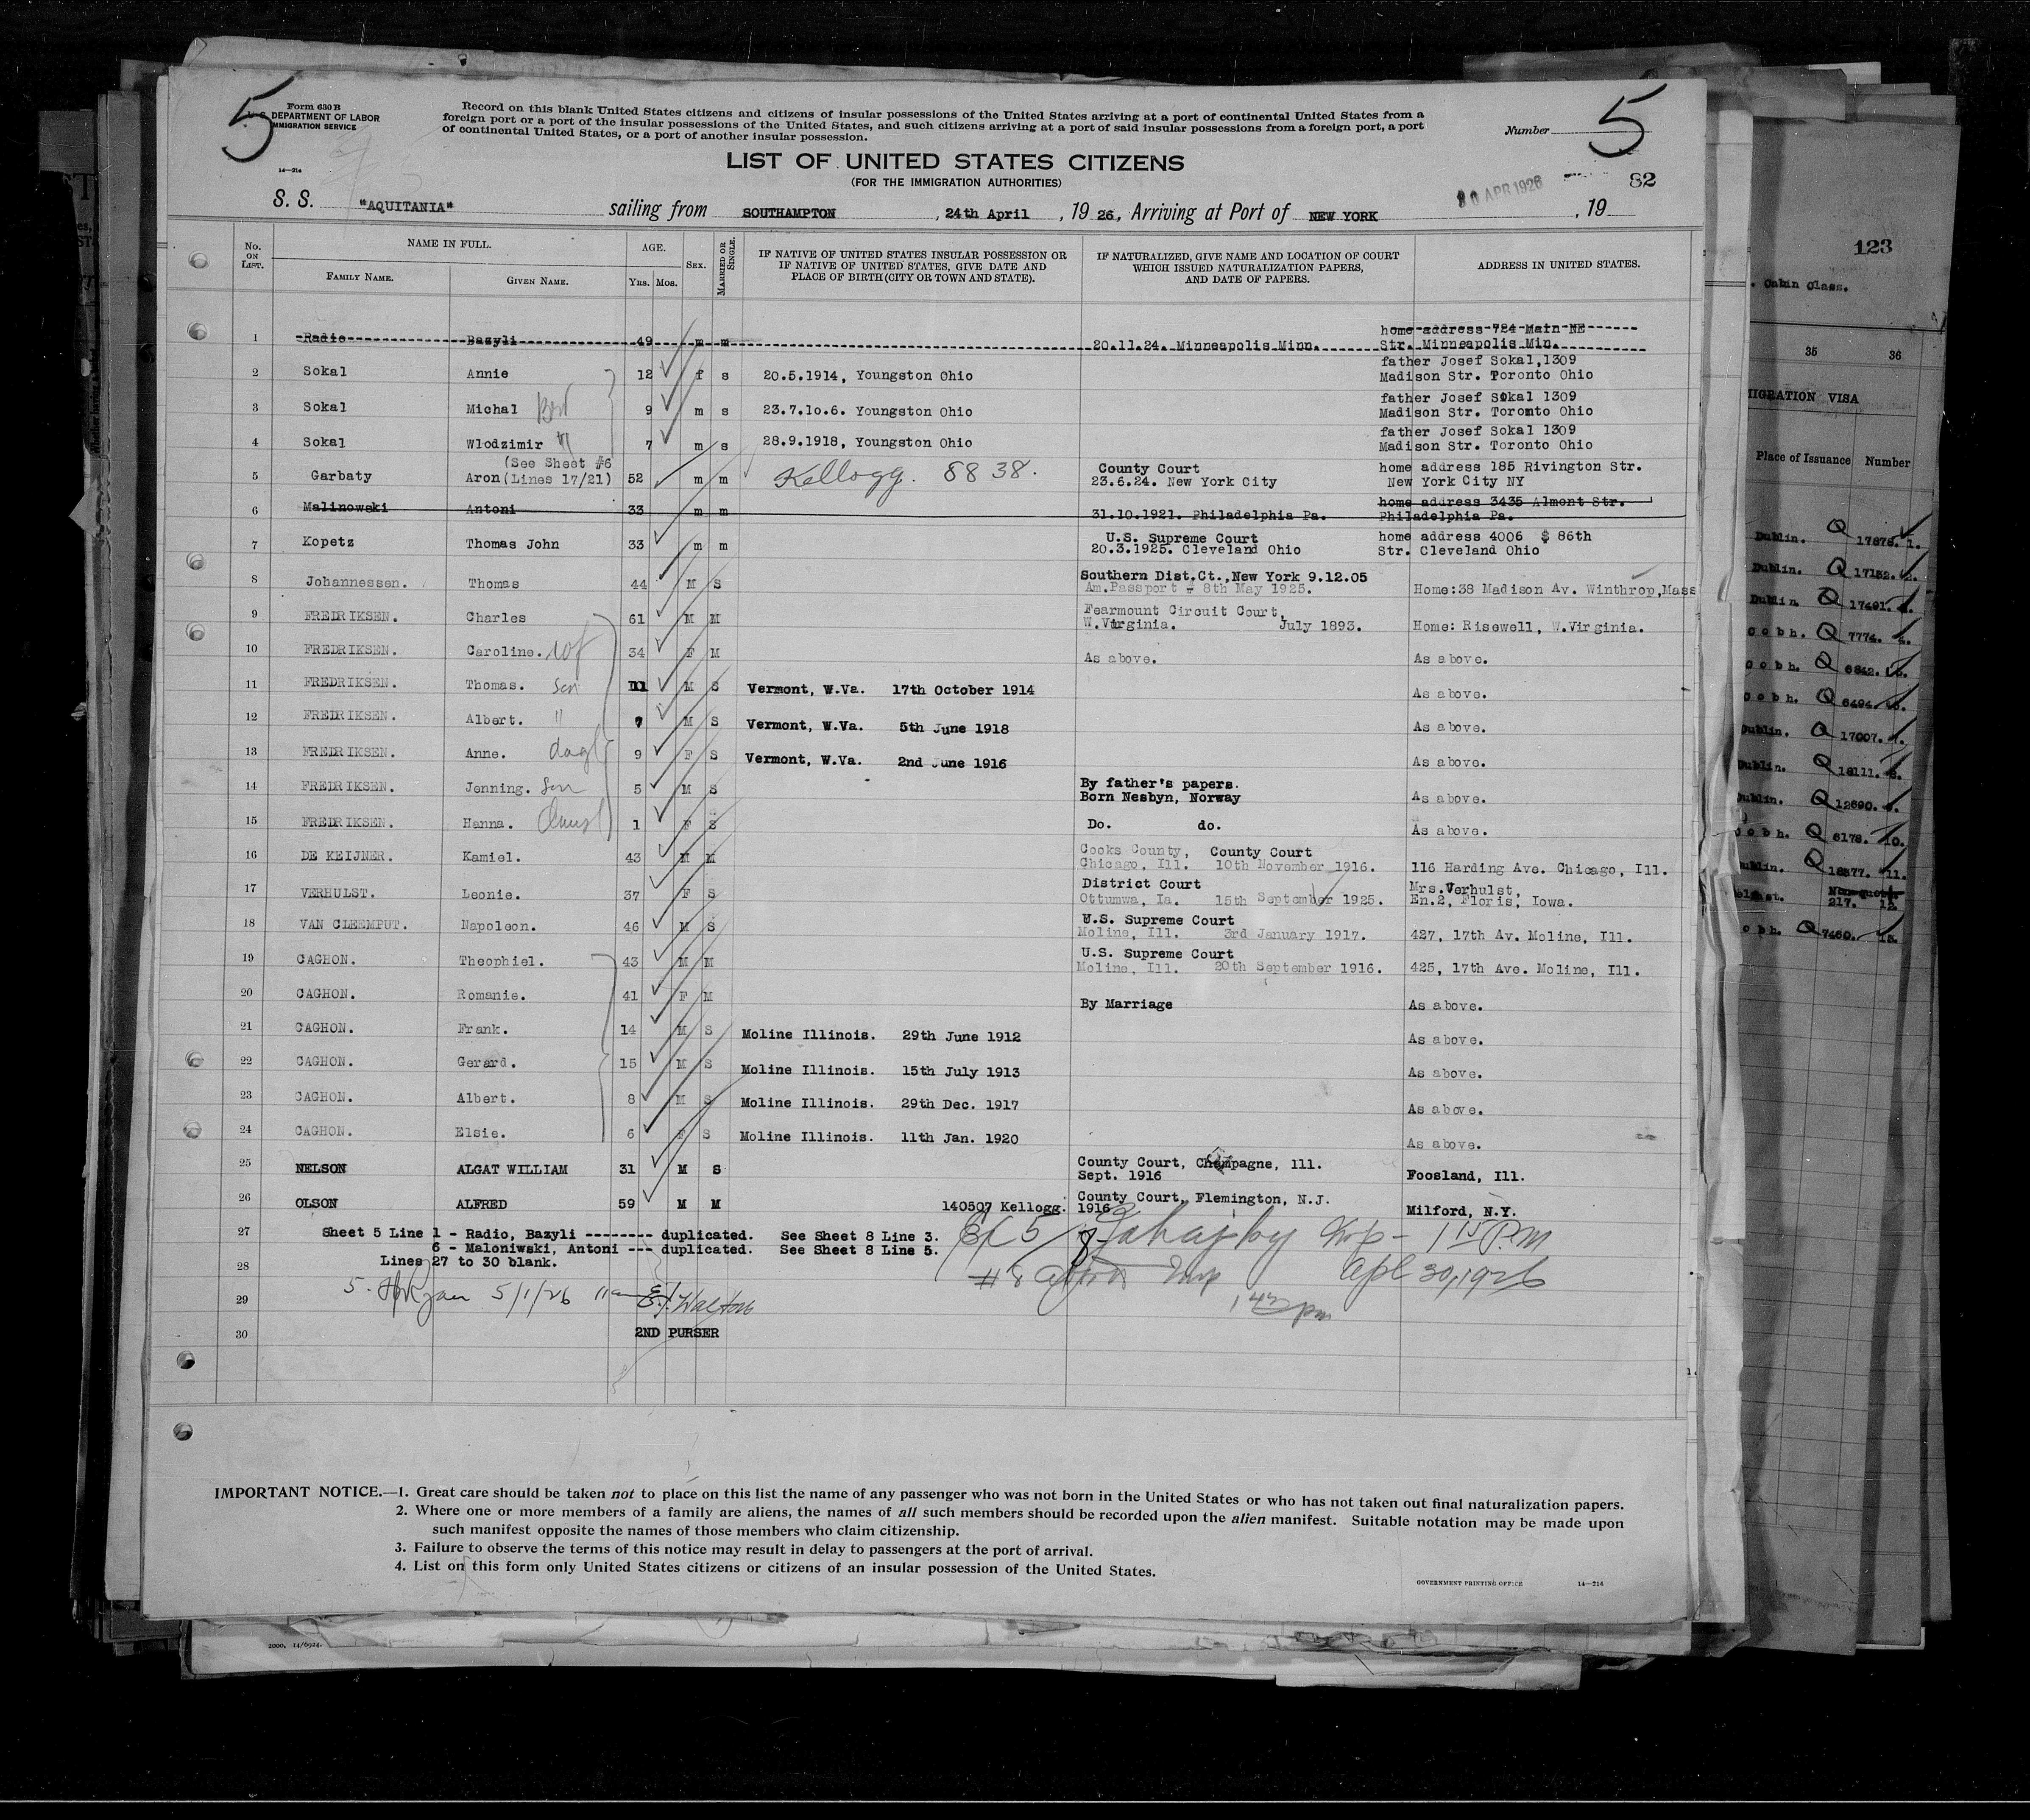 5
Form 630 B
U. S. DEPARTMENT OF LABOR
IMMIGRATION SERVICE
14—214
Record on this blank United States citizens and citizens of insular possessions of the United States arriving at a port of continental United States from a
foreign port or a port of the insular possessions of the United States, and such citizens arriving at a port of said insular possessions from a foreign port, a port
of continental United States, or a port of another insular possession.
Number 5
LIST OF UNITED STATES CITIZENS
(FOR THE IMMIGRATION AUTHORITIES)
30 APR 1926
82
S. S. "AQUITANIA" sailing from SOUTHAMPTON , 24th April , 19 26, Arriving at Port of NEW YORK , 19
No. ON LIST. NAME IN FULL. FAMILY NAME. GIVEN NAME. AGE. YRS. MOS. SEX. MARRIED OR SINGLE.
IF NATIVE OF UNITED STATES INSULAR POSSESSION OR
IF NATIVE OF UNITED STATES, GIVE DATE AND
PLACE OF BIRTH (CITY OR TOWN AND STATE).
IF NATURALIZED, GIVE NAME AND LOCATION OF COURT
WHICH ISSUED NATURALIZATION PAPERS,
AND DATE OF PAPERS.
ADDRESS IN UNITED STATES.
home address 724 Main NE
1 Radio Bazyli 49 m m 20.11.24. Minneapolis Minn. Str. Minneapolis Min.
father Josef Sokal, 1309
2 Sokal Annie 12 f s 20.5.1914, Youngston Ohio Madison Str. Toronto Ohio
father Josef Sokal 1309
3 Sokal Michal 9 m s 23.7.10.6. Youngston Ohio Madison Str. Toronto Ohio
father Josef Sokal 1309
4 Sokal Wlodzimir 7 m s 28.9.1918, Youngston Ohio Madison Str. Toronto Ohio
(See Sheet #6 County Court home address 185 Rivington Str.
5 Garbaty Aron (Lines 17/21) 52 m m Kellogg. 8838. 23.6.24. New York City New York City NY
home address 3435 Almont Str.
6 Malinowski Antoni 33 m m 31.10.1921. Philadelphia Pa. Philadelphia Pa.
U.S. Supreme Court home address 4006 $ 86th
7 Kopetz Thomas John 33 m m 20.3.1925. Cleveland Ohio Str. Cleveland Ohio
Southern Dist.Ct.,New York 9.12.05
8 Johannessen. Thomas 44 M S Am.Passport 8th May 1925. Home:38 Madison Av. Winthrop,Mass
Fearmount Circuit Court,
9 FREDRIKSEN. Charles 61 M M W.Virginia. July 1893. Home: Risewell, W.Virginia.
10 FREDRIKSEN. Caroline. wf 34 F M As above. As above.
11 FREDRIKSEN. Thomas. son 11 M S Vermont, W.Va. 17th October 1914 As above.
12 FREDRIKSEN. Albert. " 7 M S Vermont, W.Va. 5th June 1918 As above.
13 FREDRIKSEN. Anne. 9 F S Vermont, W.Va. 2nd June 1916 As above.
By father's papers.
14 FREDRIKSEN. Jenning. Son 5 M S Born Nesbyn, Norway As above.
15 FREDRIKSEN. Hanna. 1 F S Do. do. As above.
Cooks County, County Court
16 DE KEIJNER. Kamiel. 43 M M Chicago, Ill. 10th November 1916. 116 Harding Ave. Chicago, Ill.
District Court Mrs.Verhulst,
17 VERHULST. Leonie. 37 F S Ottumwa, Ia. 15th September 1925. En.2, Floris, Iowa.
U.S. Supreme Court
18 VAN CLEEMPUT. Napoleon. 46 M S Moline, Ill. 3rd January 1917. 427, 17th Av. Moline, Ill.
U.S. Supreme Court
19 CAGHON. Theophiel. 43 M M Moline, Ill. 20th September 1916. 425, 17th Ave. Moline, Ill.
20 CAGHON. Romanie. 41 F M By Marriage As above.
21 CAGHON. Frank. 14 M S Moline Illinois. 29th June 1912 As above.
22 CAGHON. Gerard. 15 M S Moline Illinois. 15th July 1913 As above.
23 CAGHON. Albert. 8 M S Moline Illinois. 29th Dec. 1917 As above.
24 CAGHON. Elsie. 6 F S Moline Illinois. 11th Jan. 1920 As above.
County Court, Champagne, Ill.
25 NELSON ALGAT WILLIAM 31 M S Sept. 1916 Foosland, Ill.
County Court, Flemington, N.J.
26 OLSON ALFRED 59 M M 140507 Kellogg. 1916 Milford, N.Y.
27 Sheet 5 Line 1 - Radio, Bazyli -------- duplicated. See Sheet 8 Line 3.
6 - Maloniwski, Antoni --- duplicated. See Sheet 8 Line 5.
1 15 P.M
28 Lines 27 to 30 blank.
Apl 30, 1926
29 5/1/26 Walton
30 2ND PURSER
IMPORTANT NOTICE.—1. Great care should be taken not to place on this list the name of any passenger who was not born in the United States or who has not taken out final naturalization papers.
2. Where one or more members of a family are aliens, the names of all such members should be recorded upon the alien manifest. Suitable notation may be made upon
such manifest opposite the names of those members who claim citizenship.
3. Failure to observe the terms of this notice may result in delay to passengers at the port of arrival.
4. List on this form only United States citizens or citizens of an insular possession of the United States.
GOVERNMENT PRINTING OFFICE 14—214
2000, 14/6924.
123
. Cabin Class.
35 36
MIGRATION VISA
Place of Issuance Number
Dublin. Q 17876. 1.
Dublin. Q 17152. 2.
Dublin. Q 17491.
Cobh. Q 7774. 4.
Cobh. Q 6842.
Cobh. Q 6494.
Dublin. Q 17007.
Dublin. Q 18111.
Dublin. Q 12690.
Cobh. Q 6178. 10.
Dublin. Q 18377. 11.
Belfast. Non-quota 217. 12.
Cobh. Q 7460. 13.